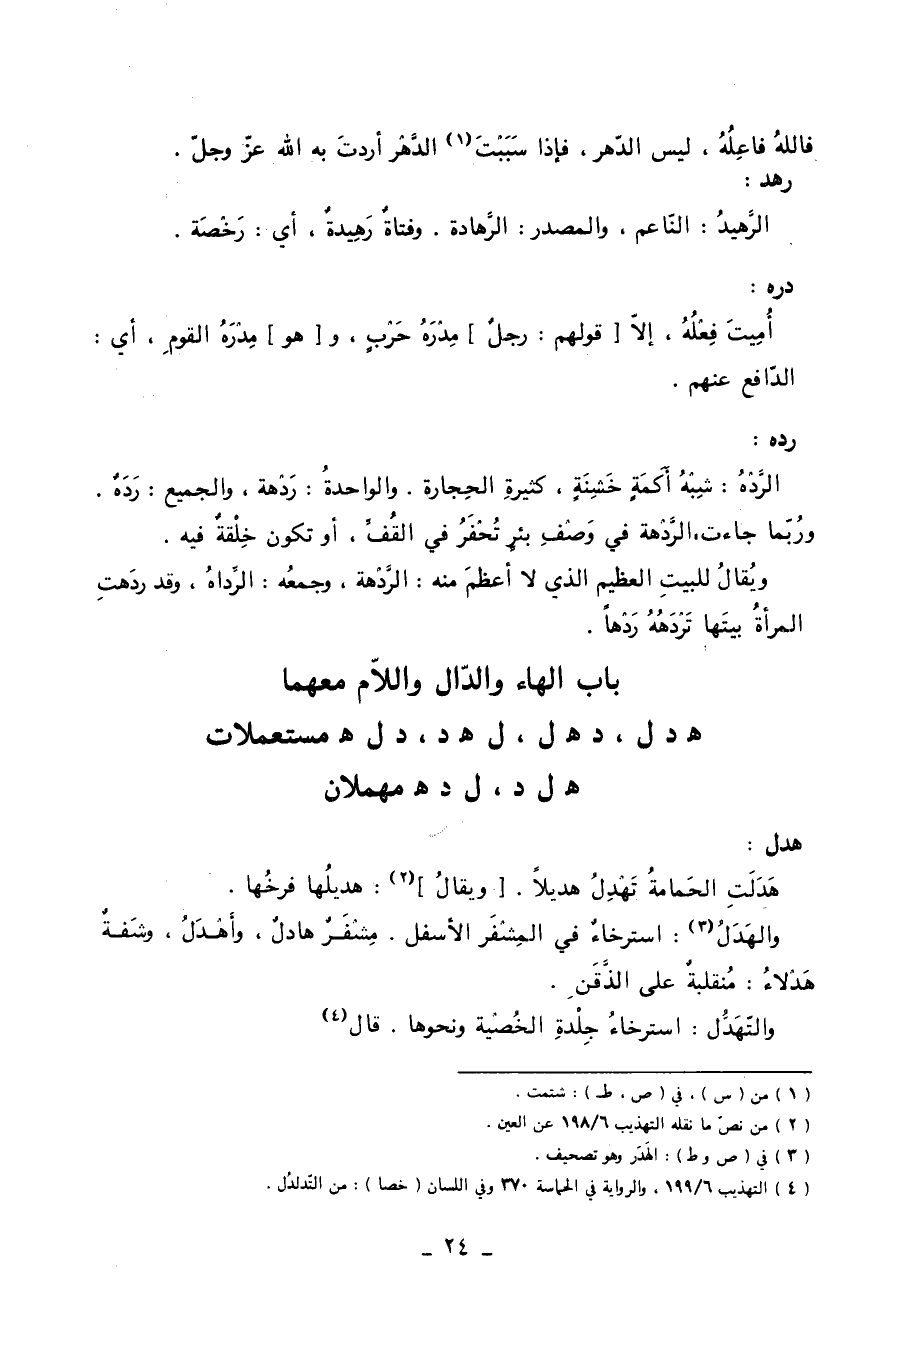 فاللهُ فاعِلُهُ ، ليس الدّهر ، فإذا سَبَبْتَ(١) الدَّهْر أردتَ به الله عزّ وجلّ .
رهد :
الرَّهيدُ : النّاعم ، والمصدر : الرَّهادة . وفتاةٌ رَهِيدةٌ ، أي : رَخْصَة .
دره :
أُمِيتَ فِعْلُهُ ، إلاّ [ قولهم : رجلٌ ] مِدْرَهُ حَرْبٍ ، و [ هو ] مِدْرَهُ القومِ ، أي :
الدّافع عنهم .
رده :
الرَّدْهُ : شِبْهُ أَكَمَةٍ خَشِنَةٍ ، كثيرةِ الحِجارة . والواحدةُ : رَدْهة ، والجميع : رَدَهٌ .
ورُبّما جاءت،الرَّدْهة في وَصْفِ بئرٍ تُحْفَرُ في القُفِّ ، أو تكون خِلْقةً فيه .
ويُقالُ للبيتِ العظيم الذي لا أعظمَ منه : الرَّدْهة ، وجمعُه : الرِّداهُ ، وقد ردَهتِ
المرأةُ بيتَها تَرْدَهُهُ رَدْهاً .
باب الهاء والدّال واللاّم معهما
ه د ل ، د ه ل ، ل ه د ، د ل ه مستعملات
ه ل د ، ل د ه مهملان
هدل :
هَدَلَتِ الحَمامةُ تَهْدِلُ هديلاً . [ ويقالُ ](٢) : هديلُها فرخُها .
والهَدَلُ(٣) : استرخاءٌ في المِشْفَر الأسفل . مِشْفَـرٌ هادلٌ ، وأَهْـدَلُ ، وشَفـةٌ
هَدْلاءُ : مُنقلبةٌ على الذَّقَنِ .
والتّهَدُّل : استرخاءُ جِلْدةِ الخُصْيةِ ونحوها . قال(٤)
( ١ ) من ( س ) ، في ( ص ، ط ) : شتمت .
( ٢ ) من نصّ ما نقله التهذيب ١٩٨/٦ عن العين .
( ٣ ) في ( ص و ط ) : الهَدَر وهو تصحيف .
( ٤ ) التهذيب ١٩٩/٦ ، والرواية في الحماسة ٣٧٠ وفي اللسان ( خصا ) : من التّدلدُل .
_ ٢٤ _